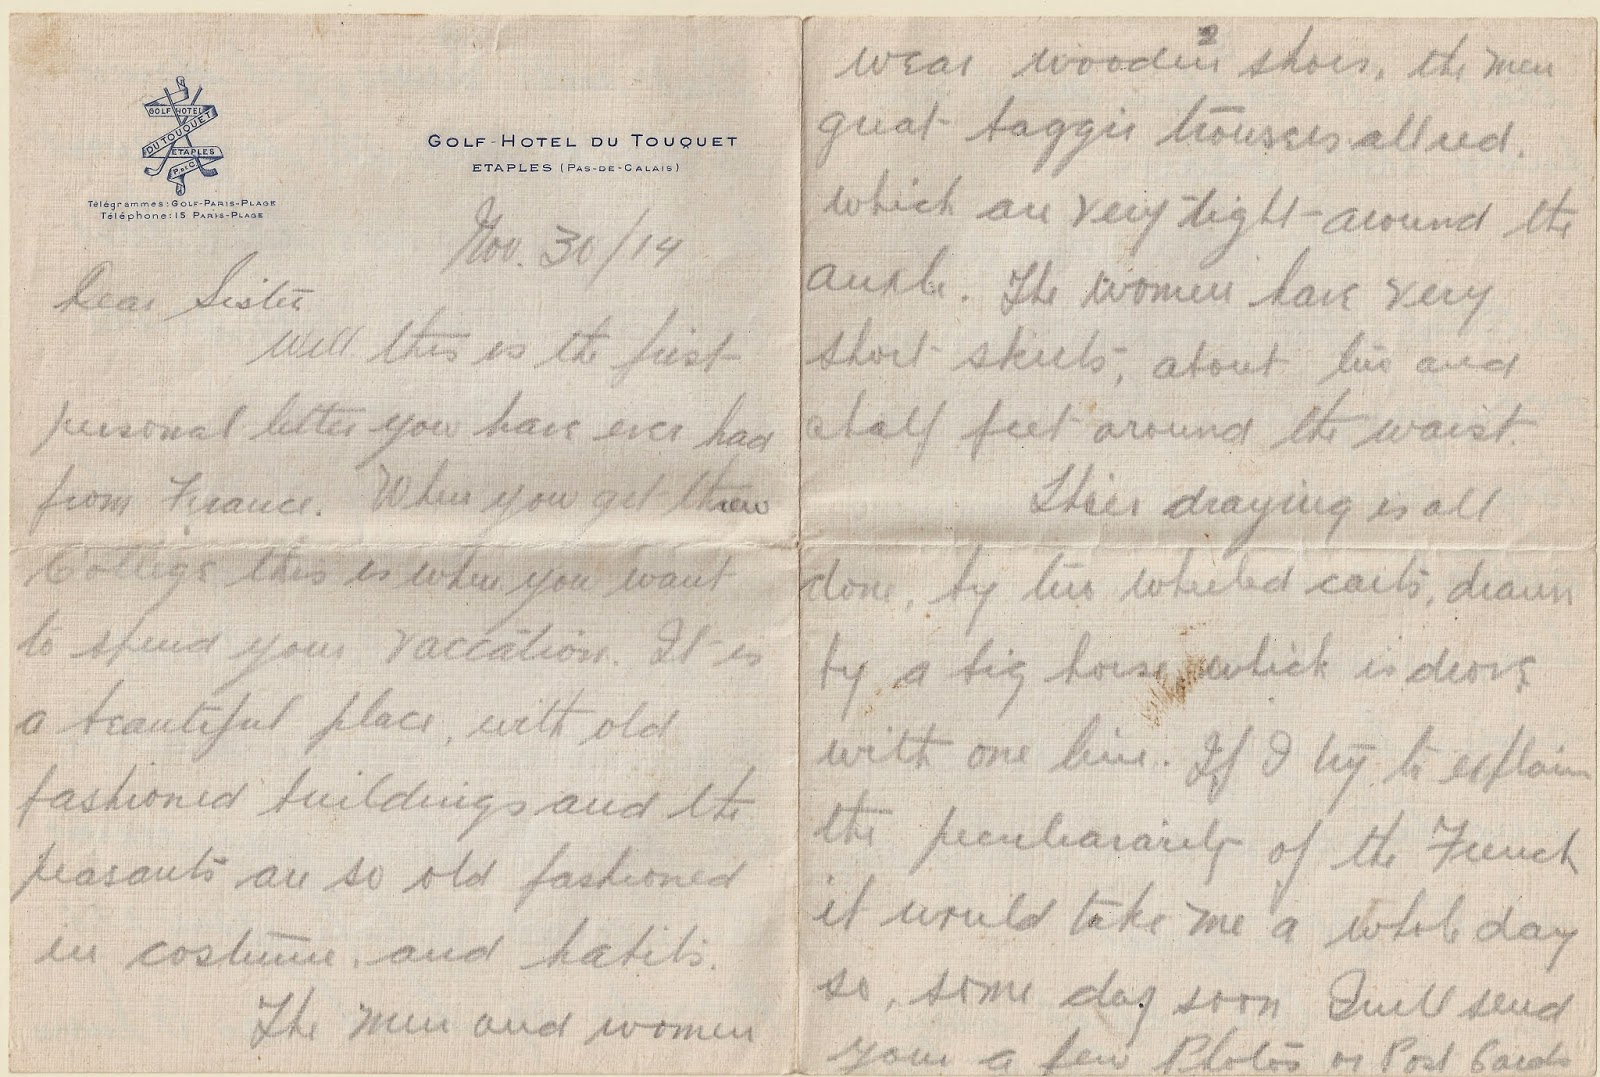 GOLF HOTEL
DU TOUQUET
ETAPLES
P. de C.
Télégrammes: Golf-Paris-Plage
Téléphone: 15 Paris-Plage
Golf-Hotel du Touquet
Etaples (Pas-de-Calais)
Nov. 30/14
Dear Sister
Well this is the first
personal letter you have ever had
from France. When you get threw
Collige this is where you want
to spend your vaccation. It is
a beautiful place, with old
fashioned buildings and the
peasants are so old fashioned
in costume, and habits.
The men and women
2
wear wooden shoes, the men
great baggie trousers all red.
which are very tight around the
ankle. The women have very
short skirts, about two and
a half feet around the waist.
Thier draying is all
done, by two wheeled carts, drawn
by a big horse which is drove
with one line. If I try to explain
the peculiararity of the French
it would take me a whole day
so, some day soon I will send
you a few Photos or Post Cards